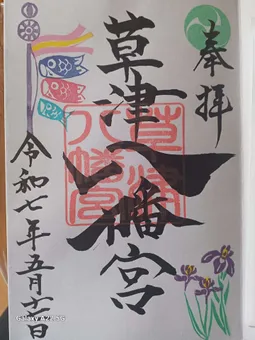 奉拝
草津八幡宮
令和七年五月十一日
草津
八幡宮
Galaxy A22 5G